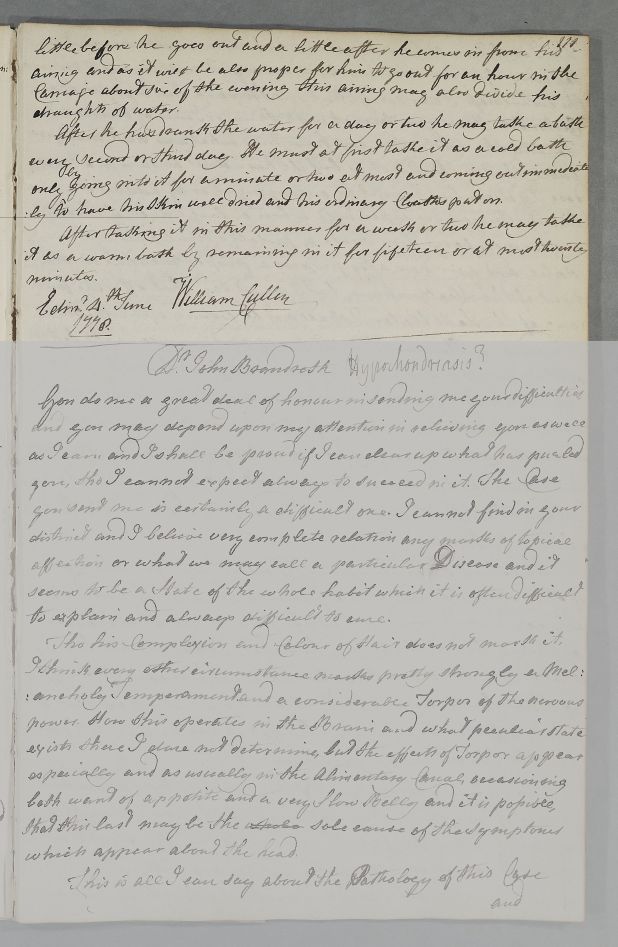 little before he goes out and a little after he comes in from his
airing and as it will be also proper for him to go out for an hour in the
Carriage about six of the evening this airing may also divide his
draughts of water.
After he has drunk the water for a day or two he may take a bath
every second or third day. He must at first take it as a cold bath
by
only going into it for a minute or two at most and coming out immediate
:ly to have his skin well dried and his ordinary Cloaths put on.
After taking it in this manner for a week or two he may take
it as a warm bath by remaining in it for fifteen or at most twenty
minutes.
Edinr. 4th June William Cullen
1778.
Dr. John Brandreth Hypochondriasis?
You do me a great deal of honour in sending me your difficulties
and you may depend upon my attention in relieving you as well
as I can and I shall be proud if I can clear up what has puzzled
you, tho I cannot expect always to succeed in it. The Case
you sent me is certainly a difficult one. I cannot find in your
distinct and I believe very complete relation any marks of topical
affection or what we may call a particular Disease and it
seems to be a State of the whole habit which it is often difficult
to explain and always difficult to cure.
Tho his Complexion and Colour of Hair does not mark it.
I think every other circumstance marks pretty strongly a Mel:
:ancholy Temperament and a considerable Torpor of the nervous
power. How this operates in the Brain and what peculiar state
exists there I dare not determine, but the effects of Torpor appear
especially and as usually in the Alimentary Canal, occasioning
both want of appetite and a very Slow Belly and it is possible,
that this last may be the sole cause of the Symptoms
which appear about the head.
This is all I can say about the Pathology of this Case
and